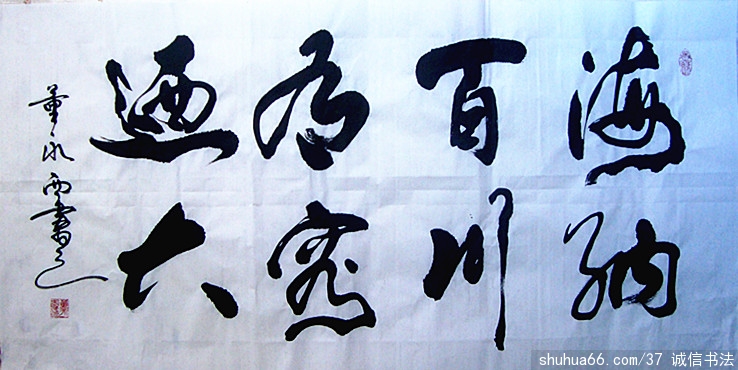 海納
百川
有容
迺大
董 書
shuhua66.com/37 诚信书法